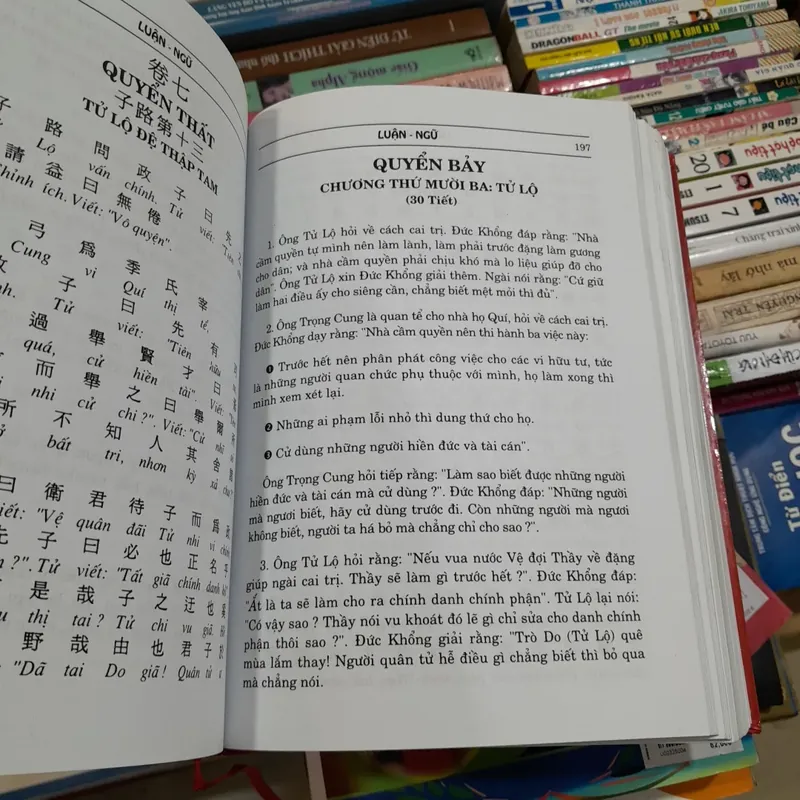 LUẬN - NGỮ
卷七
QUYỂN THẤT
子路第十三
TỬ LỘ ĐỆ THẬP TAM
子 路 問 政 子 曰 先
Lộ vấn chính. Tử viết:
請 益 曰 無 倦
Chỉnh ích. Viết: "Vô quyện".
弓 爲 季 氏 宰
Cung vi Quí thị tể,
子 曰 先 有
Tử viết: "Tiên hữu
過 舉 賢 才 曰
quá, cử hiền tài". Viết:
而 舉 之 曰 舉 爾
nhi cử chi?". Viết: "Cử nhĩ
所 不 知 人 其 舍
bất tri, nhơn kỳ xả
曰 衛 君 待 子 而 爲 政
viết: "Vệ quân đãi Tử nhi vi chính
先 子 曰 必 也 正 名 乎
Tử viết: "Tất giã chính danh
是 哉 子 之 迂 也
thị tai? Tử chi vu giã.
野 哉 由 也 君 子 於
"Dã tai Do giã! Quân tử
LUẬN - NGỮ
197
QUYỂN BẢY
CHƯƠNG THỨ MƯỜI BA: TỬ LỘ
(30 Tiết)
1. Ông Tử Lộ hỏi về cách cai trị. Đức Khổng đáp rằng: "Nhà
cầm quyền tự mình nên làm lành, làm phải trước đặng làm gương
cho dân; và nhà cầm quyền phải chịu khó mà lo liệu giúp đỡ cho
dân". Ông Tử Lộ xin Đức Khổng giải thêm. Ngài nói rằng: "Cứ giữ
làm hai điều ấy cho siêng cần, chẳng biết mệt mỏi thì đủ".
2. Ông Trọng Cung là quan tể cho nhà họ Quí, hỏi về cách cai trị.
Đức Khổng dạy rằng: "Nhà cầm quyền nên thi hành ba việc này:
❶ Trước hết nên phân phát công việc cho các vi hữu tư, tức
là những người quan chức phụ thuộc với mình, họ làm xong thì
mình xem xét lại.
❷ Những ai phạm lỗi nhỏ thì dung thứ cho họ.
❸ Cử dùng những người hiền đức và tài cán".
Ông Trọng Cung hỏi tiếp rằng: "Làm sao biết được những người
hiền đức và tài cán mà cử dùng ?". Đức Khổng đáp: "Những người
mà ngươi biết, hãy cử dùng trước đi. Còn những người mà ngươi
không biết, người ta há bỏ mà chẳng chỉ cho sao ?".
3. Ông Tử Lộ hỏi rằng: "Nếu vua nước Vệ đợi Thầy về đặng
giúp ngài cai trị. Thầy sẽ làm gì trước hết ?". Đức Khổng đáp:
"Ắt là ta sẽ làm cho ra chính danh chính phận". Tử Lộ lại nói:
"Có vậy sao ? Thầy nói vu khoát đó lẽ gì chỉ sửa cho danh chính
phận thôi sao ?". Đức Khổng giải rằng: "Trò Do (Tử Lộ) quê
mùa lắm thay! Người quân tử hễ điều gì chẳng biết thì bỏ qua
mà chẳng nói.
TỪ ĐIỂN GIẢI THÍCH
Giấc mộng Alpha
DRAGONBALL GT
AKIRA TORIYAMA
Cậu bé
20
1
7
Chàng trai xinh
mà nhớ lấy
NGUYỄN TRÃI
Từ Điển